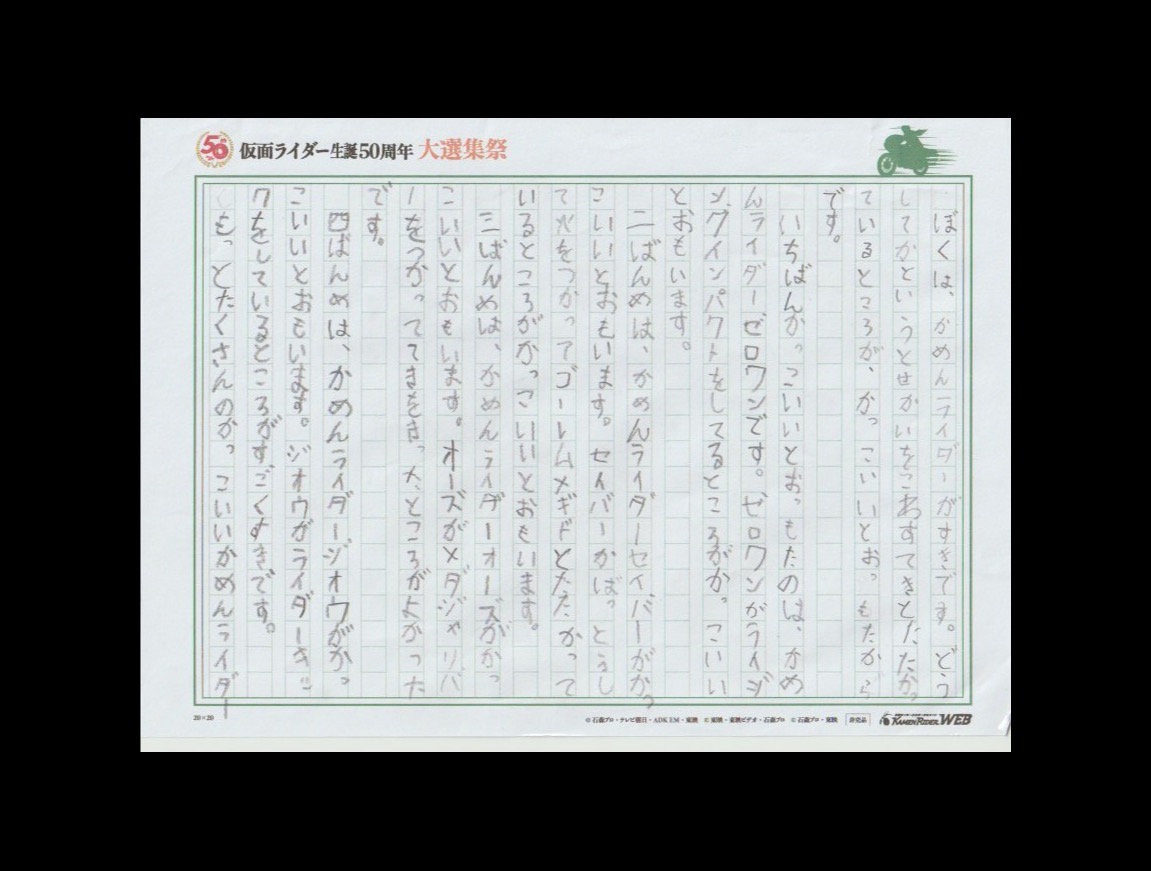 50 仮面ライダー生誕50周年 大選集祭
ぼくは、かめんライダーがすきです。どう
してかというとせかいをこわすてきとたたかっ
ているところが、かっこいいとおっもたから
です。
いちばんかっこいいとおっもたのは、かめ
んライダーゼロワンです。ゼロワンがライジ
ングインパクトをしてるところがかっこいい
とおもいます。
二ばんめは、かめんライダーセイバーがかっ
こいいとおもいます。セイバーがばっとうし
て火をつかってゴーレムメギドとたたかって
いるところがかっこいいとおもいます。
三ばんめは、かめんライダーオーズがかっ
こいいとおもいます。オーズがメダジャリバ
ーをつかっててきをきったところがよかった
です。
四ばんめは、かめんライダージオウがかっ
こいいとおもいます。ジオウがライダーキッ
クをしているところがすごくすきです。
もっとたくさんのかっこいいかめんライダー
20×20
© 石森プロ・テレビ朝日・ADK EM・東映 © 東映・東映ビデオ・石森プロ © 石森プロ・東映 非売品 KAMEN RIDER WEB